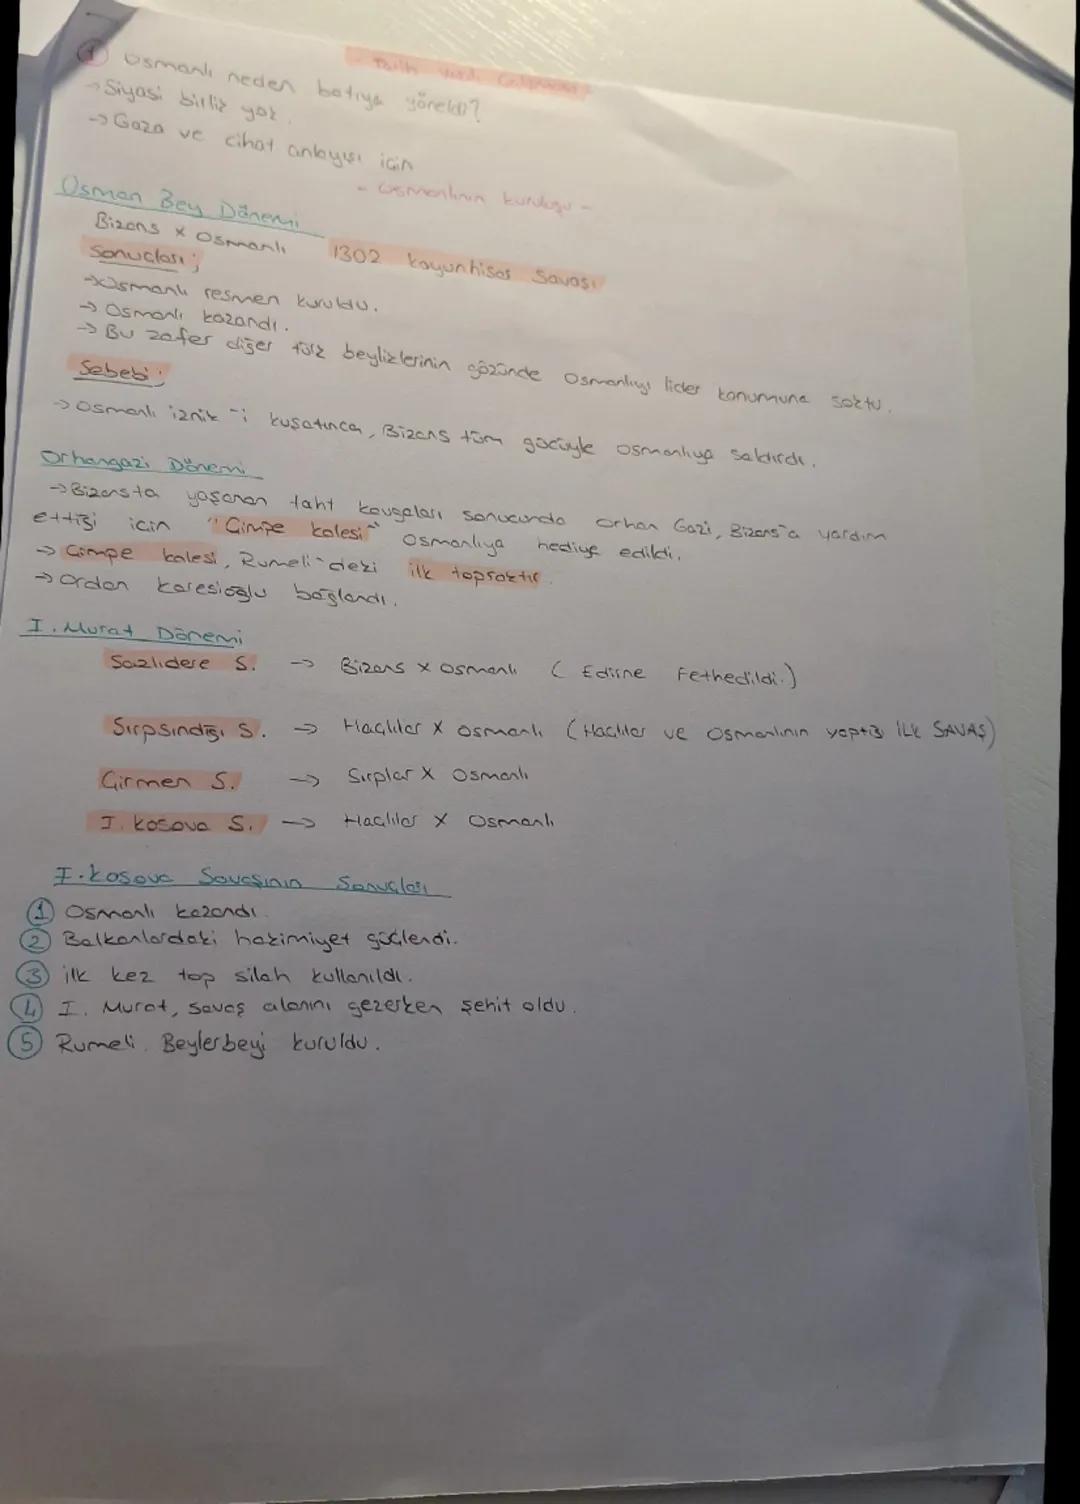 ① Osmanlı neden batıya yöneldi?
→ Siyasi birlik yok.
→ Gaza ve cihat anlayışı için
- Osmanlının kuruluşu -
Osman Bey Dönemi
Bizans x Osmanlı 1302 Koyunhisar Savaşı
Sonuçları;
→ Osmanlı resmen kuruldu.
→ Osmanlı kazandı.
→ Bu zafer diğer türk beyliklerinin gözünde Osmanlıyı lider konumuna soktu.
Sebebi;
→ Osmanlı iznik-i kuşatınca, Bizans tüm gücüyle osmanlıya saldırdı.
Orhangazi Dönemi
→ Bizansta yaşanan taht kavgaları sonucunda Orhan Gazi, Bizans'a yardım
ettiği için "Çimpe kalesi" Osmanlıya hediye edildi.
→ Çimpe kalesi, Rumeli-deki ilk topraktır.
→ Ordan karesioğlu bağlandı.
I. Murat Dönemi
Sazlıdere S. → Bizans x Osmanlı ( Edirne Fethedildi.)
Sırpsındığı S. → Haçlılar x Osmanlı (Haçlılar ve Osmanlının yaptığı İLK SAVAŞ)
Çirmen S. → Sırplar x Osmanlı
I. Kosova S. → Haçlılar x Osmanlı
I. Kosova Savaşının Sonuçları
① Osmanlı kazandı.
② Balkanlardaki hakimiyet güçlendi.
③ ilk kez top silah kullanıldı.
④ I. Murat, savaş alanını gezerken şehit oldu.
⑤ Rumeli Beylerbeyi kuruldu.